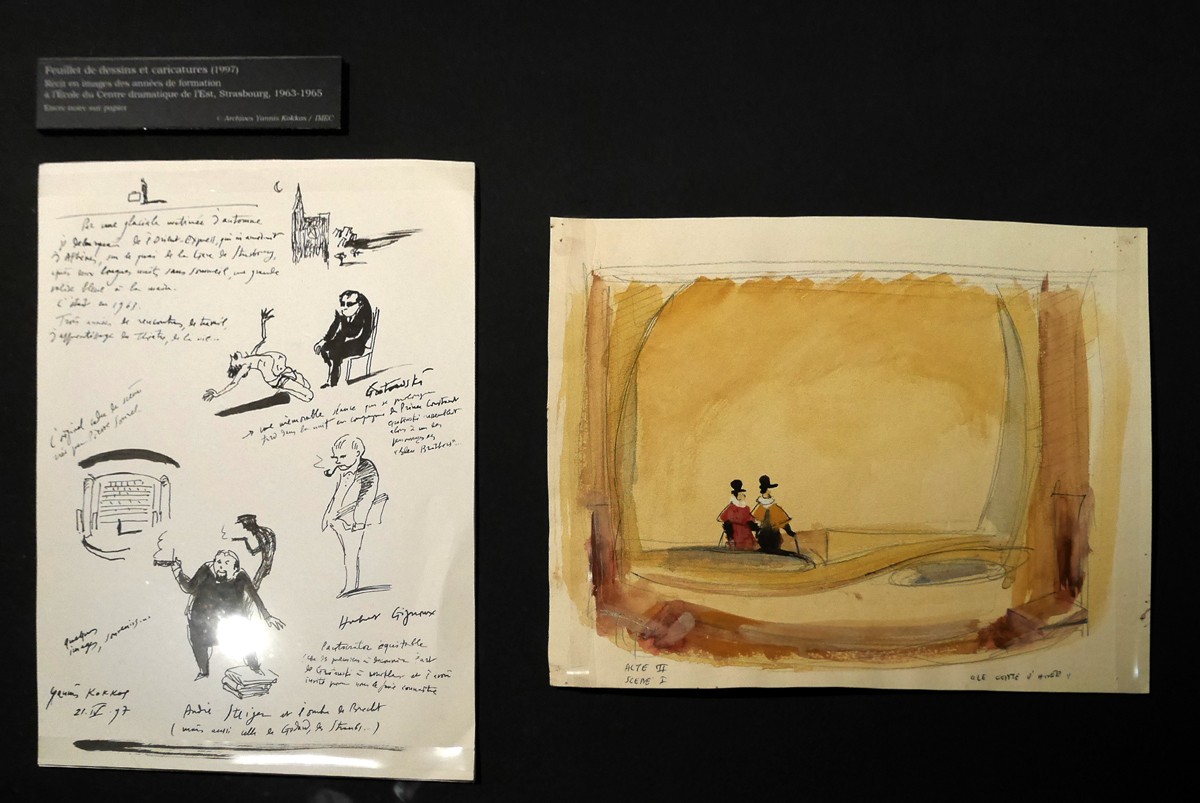 Feuillet de dessins et caricatures (1997)
Récit en images des années de formation
à l'École du Centre dramatique de l'Est, Strasbourg, 1963-1965
Encre noire sur papier
© Archives Yannis Kokkos / IMEC
Par une glaciale matinée d'automne
je débarquais de l'Orient-Express, qui m'amenait
d'Athènes, sur le quai de la Gare de Strasbourg,
après deux longues nuits sans sommeil, une grande
valise bleue à la main.
C'était en 1963.
Trois années de rencontres, de travail,
d'apprentissage du Théâtre, de la vie..
Grotowski
une mémorable séance qui se prolongea
tard dans la nuit en compagnie du Prince Constant
Grotowski ressemblait
alors à un des
personnages des
"Blues Brothers"..
L'original cadre de scène
créé par Pierre Sonrel
Hubert Gignoux
quelques
images, souvenirs...
Yannis Kokkos
21.IV.97
André Steiger et l'ombre de Brecht
(mais aussi celle de Godard, des Straubs..)
ACTE II
SCENE I
"LE CONTE D'HIVER"